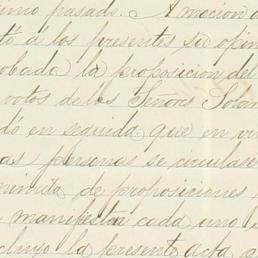 ximo pasado. A mocion d
tó á los presentes su opin
obada la proposicion del
votos de los Señores Solar
dó en seguida que en vi
as personas se circulase
inimita de proposiciones
manifestar cada uno s
cluyó la presente acta q